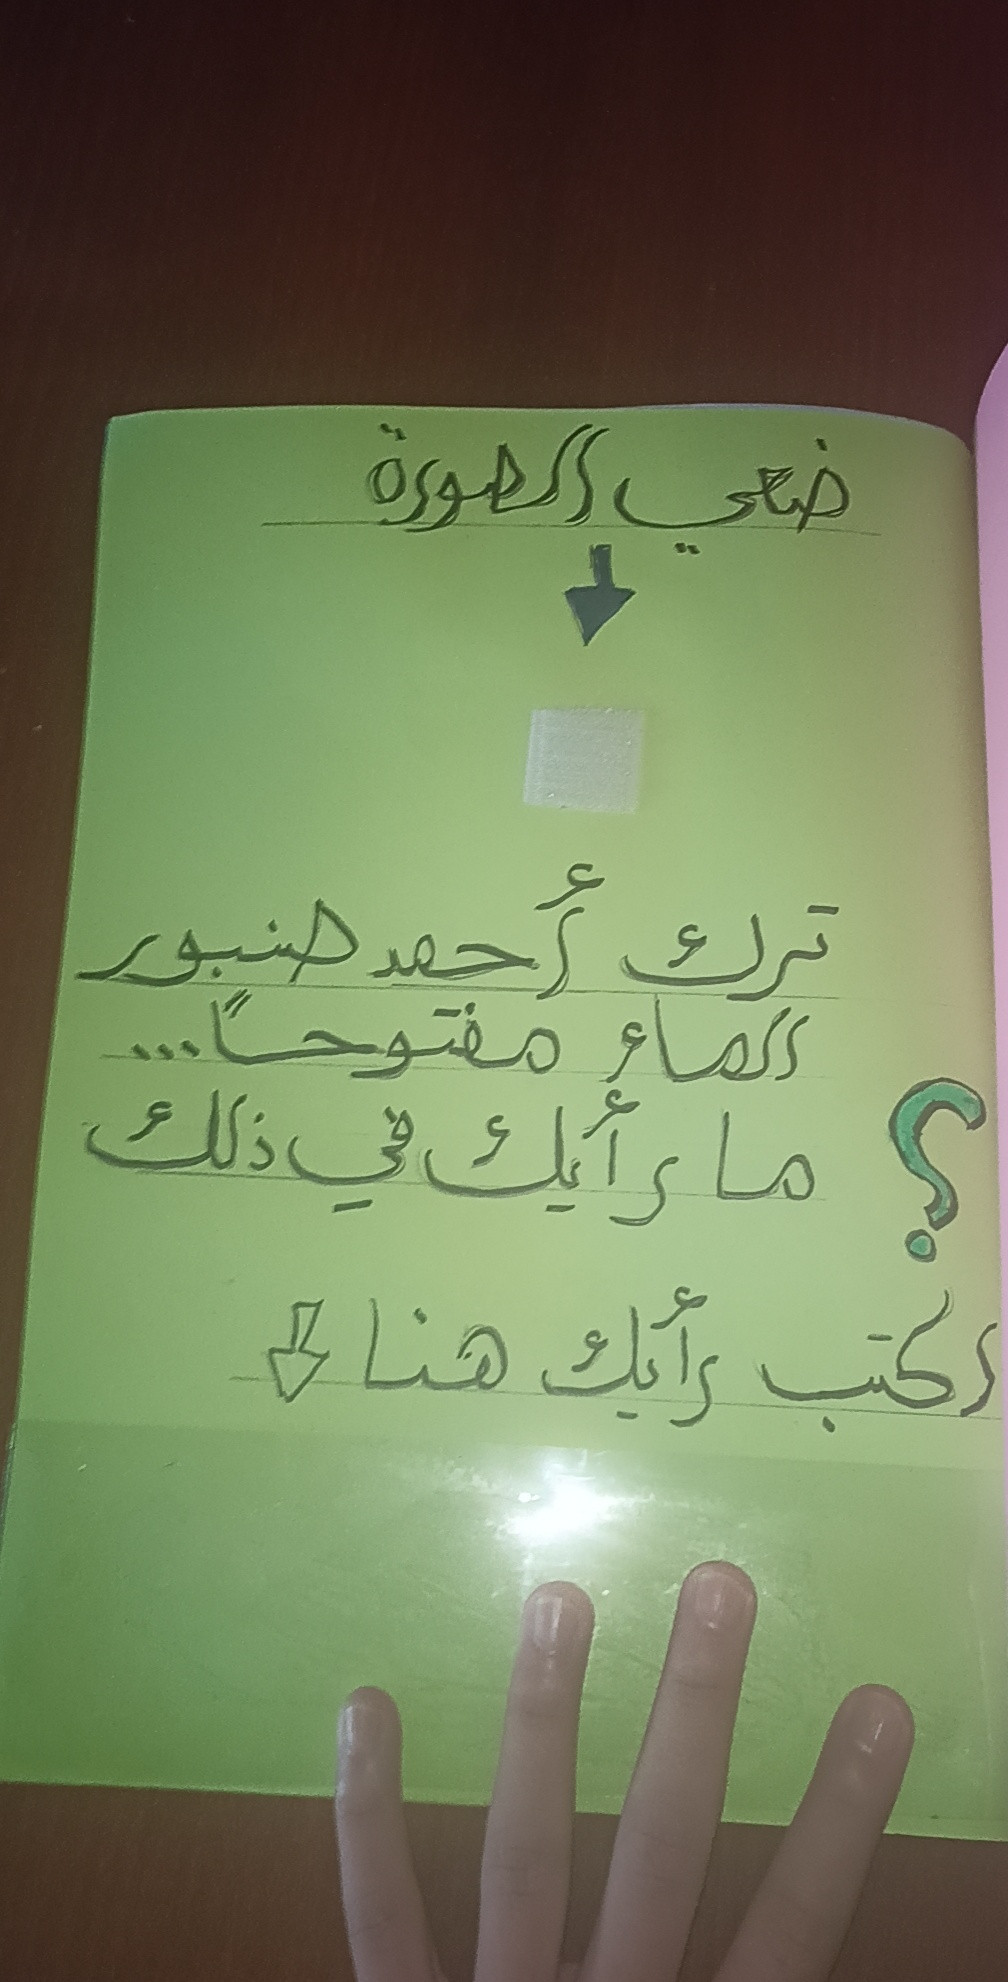 ضعي الصورة
ترك أحمد صنبور
الماء مفتوحاً...
ما رأيك في ذلك ؟
اكتب رأيك هنا